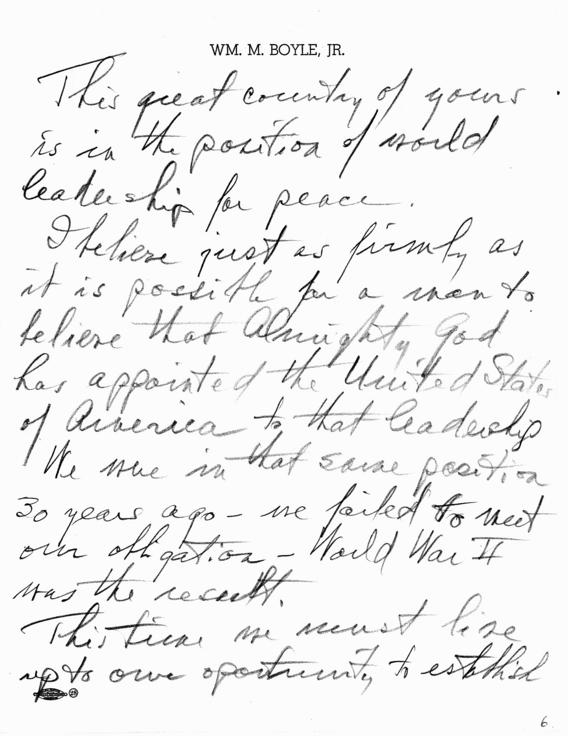 WM. M. BOYLE, JR.
This great country of yours
is in the position of world
leadership for peace.
I believe just as firmly as
it is possible for a man to
believe that Almighty God
has appointed the United States
of America to that leadership
We were in that same position
30 years ago - we failed to meet
our obligation - World War II
was the result.
This time we must live
up to our oportunity to establish
6